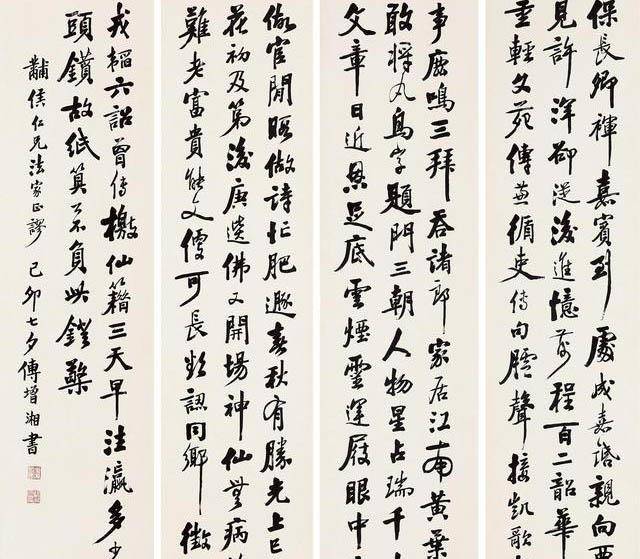 保長卿禪嘉賓到處成嘉話親向西
見許洋卻從後進憶前程百二韶華
重輕文苑傳兼循吏傳句臚聲接凱歌
事鹿鳴三拜吞諸郎家居江南黃葉
敢將凡鳥字題門三朝人物星占瑞千
文章日近恩足底雲煙靈運屐眼中
做官閒暇做詩忙肥遯春秋有勝光上巳
花初及第後唐選佛又開場神仙無病
難老富貴能文儘可長欵認同鄉徵
戎韜六詔曾傳檄仙籍三天早注瀛多少
頭鑽故紙算不負此鐙檠
黼侯仁兄法家正謬 己卯七夕傅增湘書